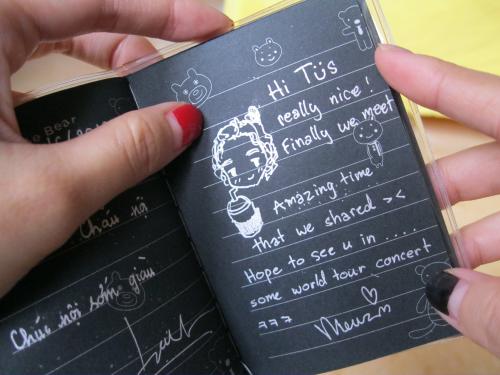 e Bear
Cháu nội
Chúc nội sớm giàu
Hi Tüs
really nice!
Finally we meet
Amazing time
that we shared ><
Hope to see u in ....
some world tour concert
777